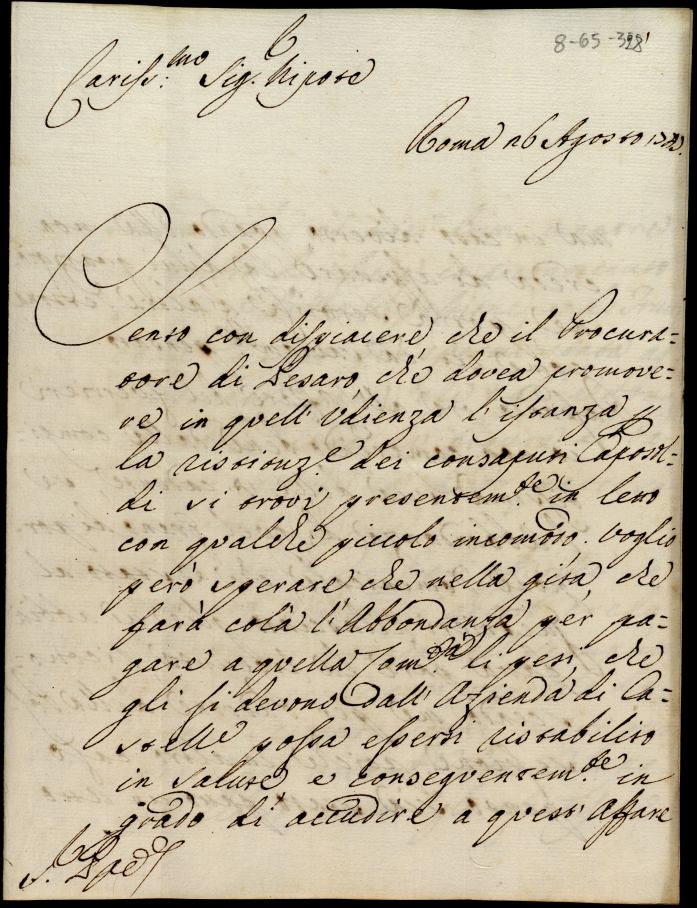 8-65-328
Cariss:mo Sig. Nipote
Roma 26 Agosto
Sento con dispiacere che il Procura=
tore di Pesaro, che dovea promove=
re in quell' Udienza l'istanza p
la ristionz.e dei consaputi Caposol=
di si trovi presentem.te in letto
con qualche piccolo incomodo. Voglio
però sperare che nella gita, che
farà colà l'Abbondanza per pa=
gare a quella Com.tà li pesi, che
gli si devono dall' Azienda di Ca=
stelle possa essersi ristabilito
in salute e conseguentem.te in
grado di accudire a quest' Affare